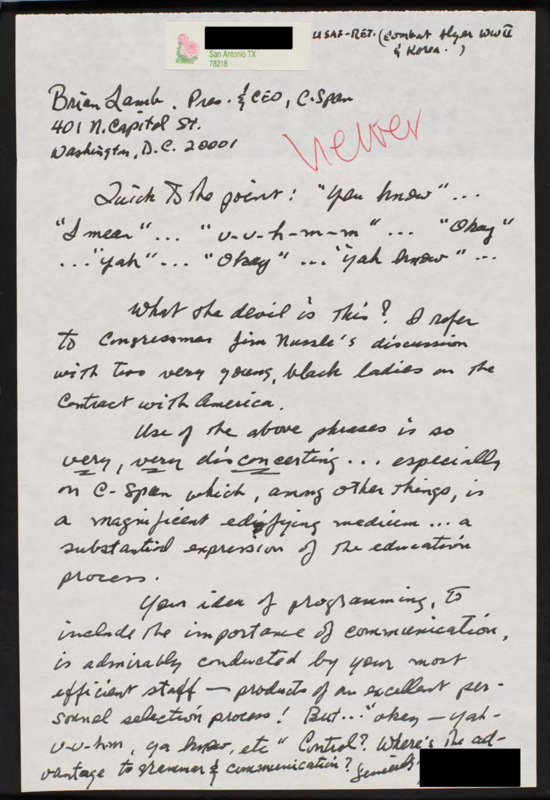 San Antonio TX
78218
USAF-RET. (Combat flyer WW II
& Korea.)
Brian Lamb, Pres. & CEO, C-Span
401 N. Capitol St.
Washington, D.C. 20001
Quick to the point: "You know" ...
"I mean" ... "u-u-h-m-m" ... "Okay"
... "Yah" ... "Okay" ... "Yah know" ...
What the devil is this? I refer
to Congressman Jim Nussle's discussion
with two very young, black ladies on the
Contract with America.
Use of the above phrases is so
very, very disconcerting ... especially
on C-Span which, among other things, is
a magnificent edifying medium ... a
substantial expression of the education
process.
Your idea of programming, to
include the importance of communication,
is admirably conducted by your most
efficient staff — products of an excellent per-
sonnel selection process! But... "okay — yah-
u-u-hm, ya know, etc" Control? Where's the ad-
vantage to grammar & communication?